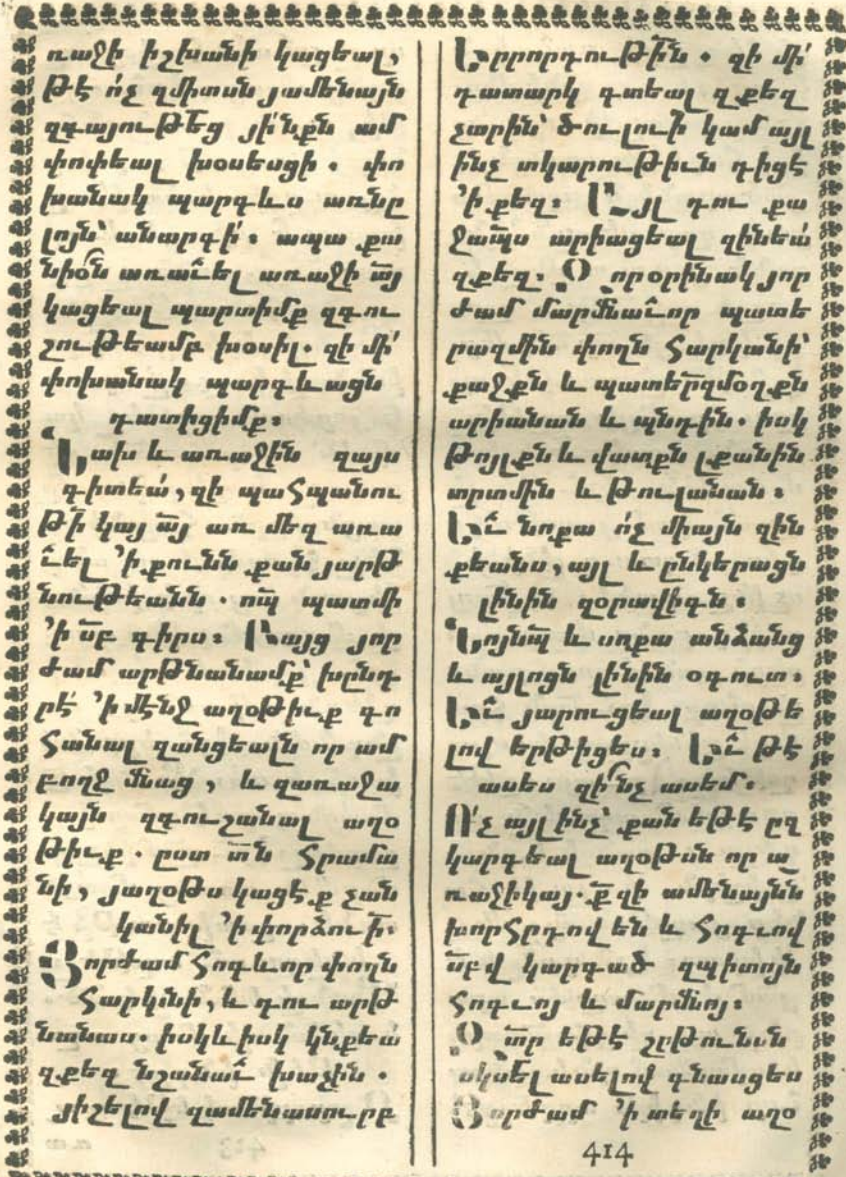 ռաջի իշխանի կացեալ,
թէ ոչ զմիտսն յամենայն
զգայութեց յինքն ամ
փոփեալ խօսեսցի. փո
խանակ պարգևս առնը
լոյն՝ անարգի. ապա քա
նիօն առաւել առաջի այ
կացեալ պարտիմք զգու
շութեամբ խօսիլ. զի մի՛
փոխանակ պարգևացն
դատիցիմք։
Նախ և առաջին զայս
գիտեա, զի պահպանու
թի կայ այ առ մեզ առա
ւել ՚ի քունն քան յարթ
նութեանն. ոպ պատմի
՚ի սբ գիրս։ Բայց յոր
ժամ արթնանամք՝ խընդ
րէ ՚ի մէնջ աղօթիւք գո
հանալ զանցեալն որ ամ
բողջ մնաց, և զառաջա
կայն զգուշանալ աղօ
թիւք. ըստ տն հրամա
նի, յաղօթս կացէք չան
կանիլ ՚ի փորձուի.
Յորժամ հոգևոր փողն
հարկինի, և դու արթ
նանաս. իսկևիսկ կնքեա
զքեզ նշանաւ խաչին.
յիշելով զամենասուրբ
Երրորդութիւն. զի մի՛
դատարկ գտեալ զքեզ
չարին՝ ծուլուի կամ այլ
ինչ տկարութիւն դիցէ
՚ի քեզ։ Այլ դու քա
ջապս արիացեալ զինեա
զքեզ։ Զորօրինակ յոր
ժամ մարմնաւոր պատե
րազմին փողն հարկանի՝
քաջքն և պատերզմօղքն
արիանան և պնդին. իսկ
թոյլքն և վատքն լքանին
տրտմին և թուլանան։
Եւ նոքա ոչ միայն զին
քեանս, այլ և ընկերացն
լինին զօրավիգն։
Նոյնպ և սոքա անձանց
և այլոցն լինին օգուտ։
Եւ յարուցեալ աղօթե
լով երթիցես։ Եւ թէ
ասես զինչ ասեմ.
Ո՛չ այլ ինչ՝ քան եթէ ըզ
կարգեալ աղօթսն որ ա
ռաջիկայ. քզի ամենայնն
խորհրդով են և հոգւով
սբվ կարգած զպիտոյն
հոգւոյ և մարմնոյ։
Զոր եթէ շըթունսն
սկսել ասելով գնասցես
Յորժամ ՚ի տեղի աղօ
414